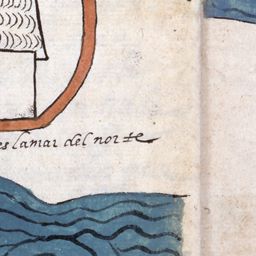 es lamar del norte